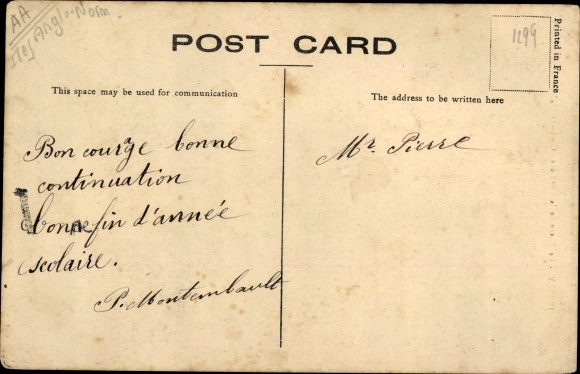 AA
Iles Anglo-Norm.
POST CARD
1299
Printed in France
This space may be used for communication
The address to be written here
Bon courage bonne
continuation
bonne fin d'année
scolaire.
P. Montembault
Mr. Pierre